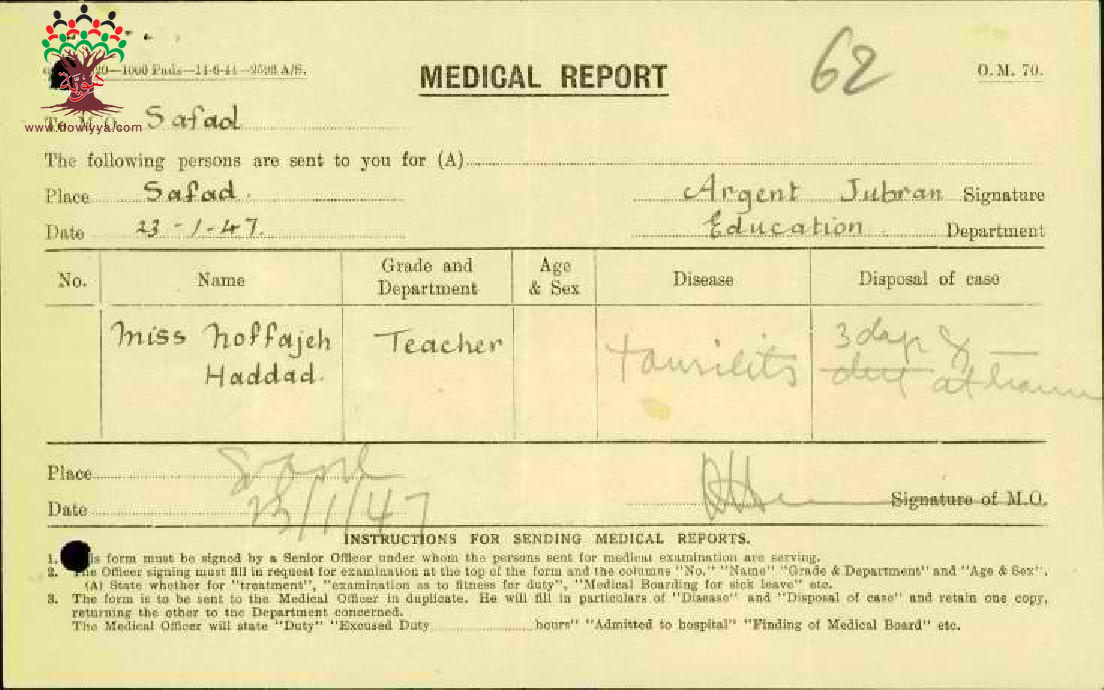 20—1000 Pads—14-6-44—2523 A/S.
MEDICAL REPORT
62
O.M. 70.
www.howiyya.com
To M.O. Safad
The following persons are sent to you for (A)
Place Safad. Argent Jubran Signature
Date 23-1-47. Education Department
No. Name Grade and Department Age & Sex Disease Disposal of case
Miss Noffajeh Teacher 3 days
Haddad.
Place
Date 23/1/47 Signature of M.O.
INSTRUCTIONS FOR SENDING MEDICAL REPORTS.
1. form must be signed by a Senior Officer under whom the persons sent for medical examination are serving.
2. The Officer signing must fill in request for examination at the top of the form and the columns "No," "Name" "Grade & Department" and "Age & Sex".
(A) State whether for "treatment", "examination as to fitness for duty", "Medical Boarding for sick leave" etc.
3. The form is to be sent to the Medical Officer in duplicate. He will fill in particulars of "Disease" and "Disposal of case" and retain one copy,
returning the other to the Department concerned.
The Medical Officer will state "Duty" "Excused Duty hours" "Admitted to hospital" "Finding of Medical Board" etc.